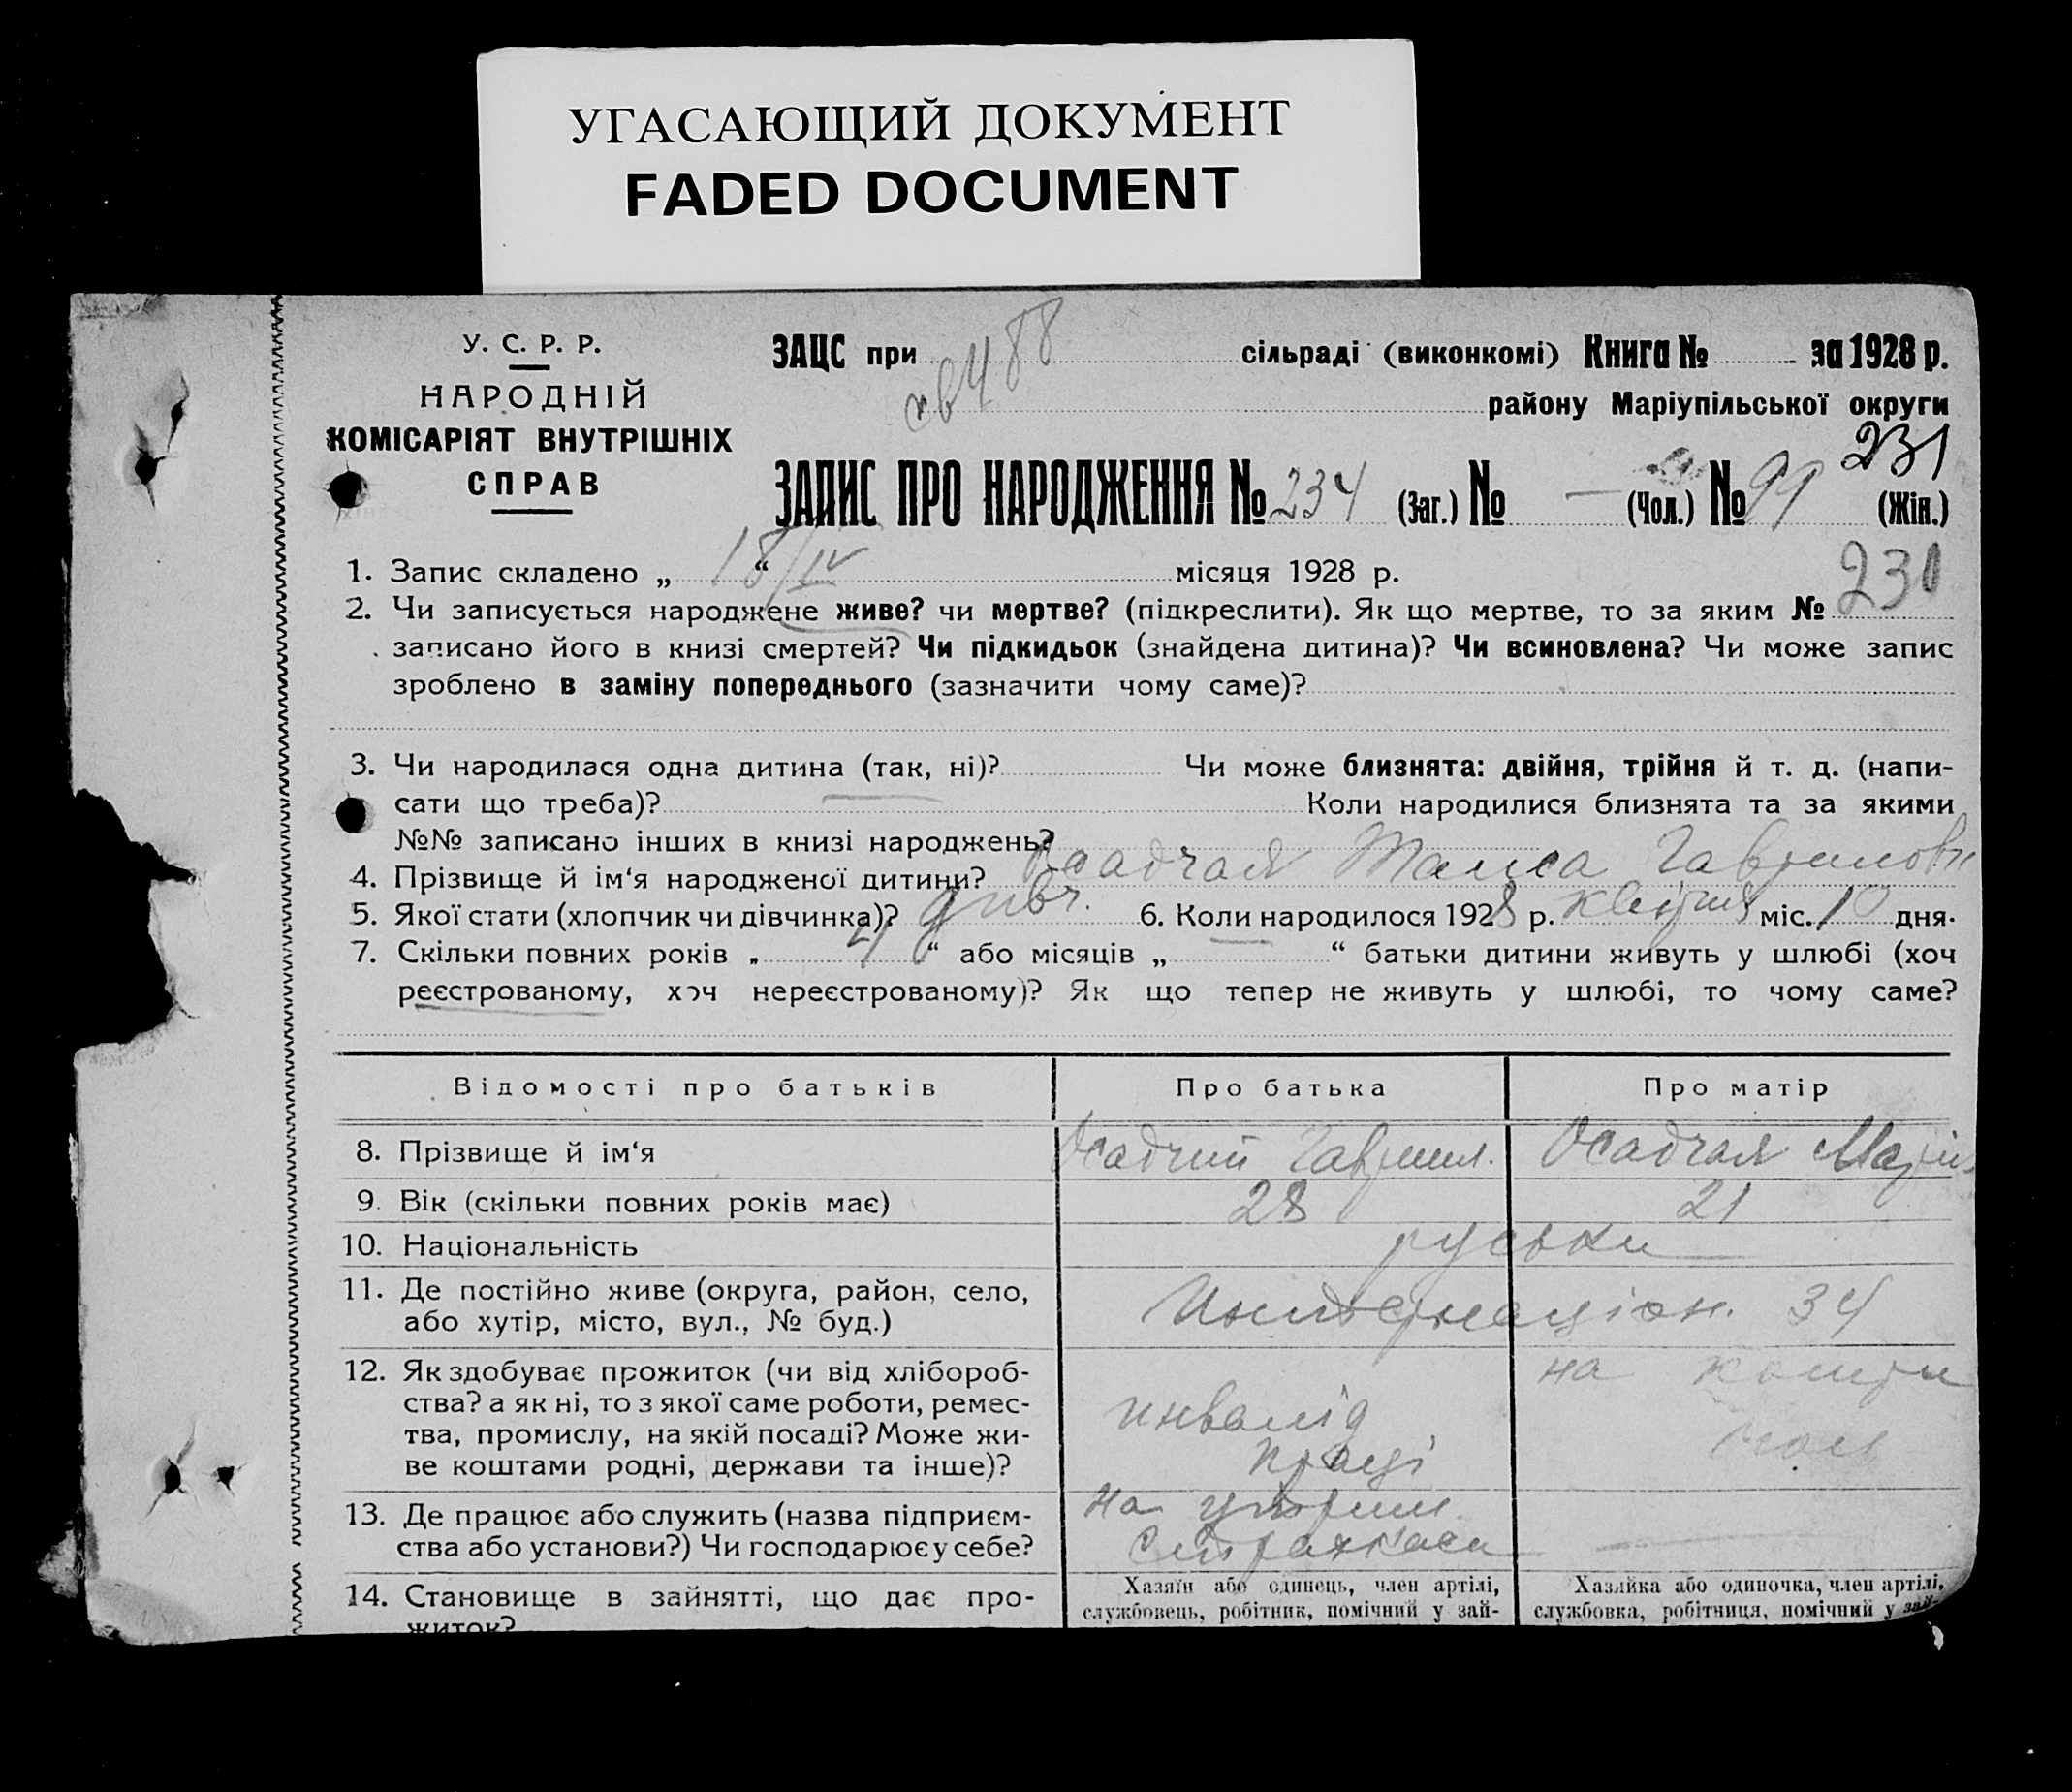 УГАСАЮЩИЙ ДОКУМЕНТ
FADED DOCUMENT
У. С. Р. Р.
НАРОДНІЙ
КОМІСАРІЯТ ВНУТРІШНІХ
СПРАВ
ЗАЦС при сільраді (виконкомі) Книга № за 1928 р.
кв 488
району Маріупільської округи
231
ЗАПИС ПРО НАРОДЖЕННЯ № 234 (Заг.) № — (Чол.) № 99 (Жін.)
1. Запис складено „ 18/IV “ місяця 1928 р.
230
2. Чи записується народжене живе? чи мертве? (підкреслити). Як що мертве, то за яким №
записано його в книзі смертей? Чи підкидьок (знайдена дитина)? Чи всиновлена? Чи може запис
зроблено в заміну попереднього (зазначити чому саме)?
3. Чи народилася одна дитина (так, ні)? Чи може близнята: двійня, трійня й т. д. (напи-
сати що треба)? Коли народилися близнята та за якими
№№ записано інших в книзі народжень?
4. Прізвище й ім‘я народженої дитини? Осадчая Таиса Гавриловн
5. Якої стати (хлопчик чи дівчинка)? дивч. 6. Коли народилося 1928 р. квітня міс. 10 дня.
7. Скільки повних років „ 4 “ або місяців „ — “ батьки дитини живуть у шлюбі (хоч
реєстрованому, хоч нереєстрованому)? Як що тепер не живуть у шлюбі, то чому саме?
Відомості про батьків Про батька Про матір
8. Прізвище й ім‘я Осадчий Гаврил. Осадчая Марія
9. Вік (скільки повних років має) 28 21
10. Національність руськи
11. Де постійно живе (округа, район, село,
або хутір, місто, вул., № буд.) Интернаціон. 34
12. Як здобуває прожиток (чи від хлібороб-
ства? а як ні, то з якої саме роботи, ремес-
тва, промислу, на якій посаді? Може жи-
ве коштами родні, держави та інше)?
инвалід
праці
на кошти
13. Де працює або служить (назва підприєм-
ства або установи?) Чи господарює у себе?
на утрим.
Страхкаси
14. Становище в зайнятті, що дає про-
житок?
Хазяїн або одинець, член артілі,
службовець, робітник, помічний у зай-
Хазяйка або одиночка, член артілі,
службовка, робітниця, помічний у зай-